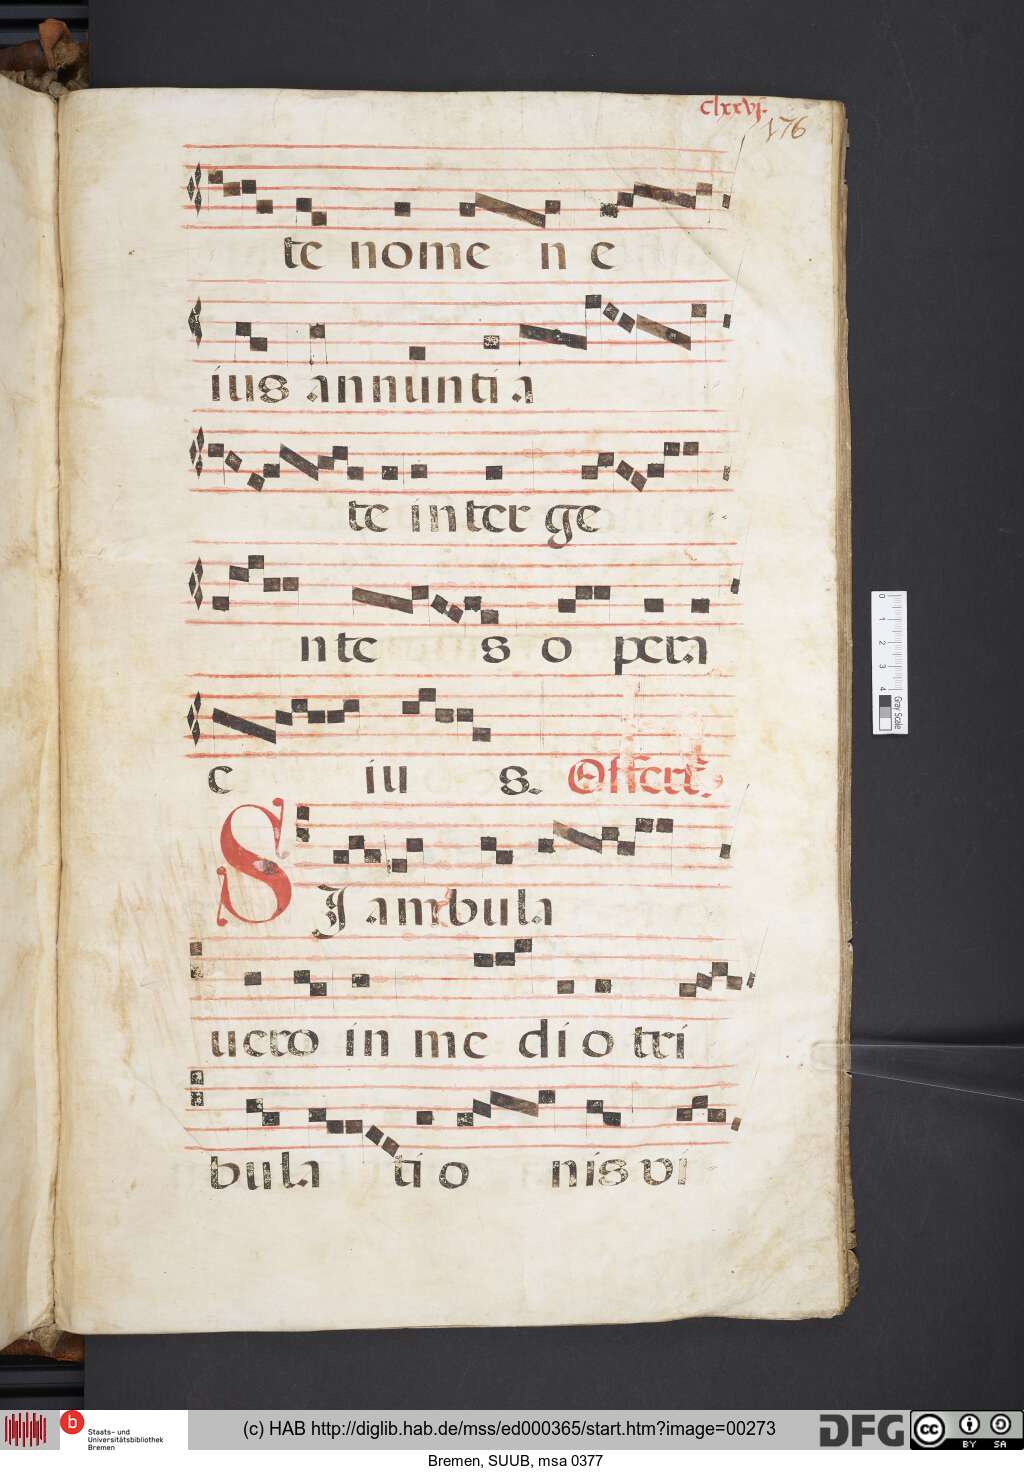 clxxvj.
176
te nome n e
ius annuntia
te inter ge
nte s o pera
e iu s. Offert.
SI ambula
uero in me dio tri
bula ti o nis vi
0 1 2 3 4
Gray Scale
b
Staats- und
Universitätsbibliothek
Bremen
(c) HAB http://diglib.hab.de/mss/ed000365/start.htm?image=00273
DFG
cc BY SA
Bremen, SUUB, msa 0377